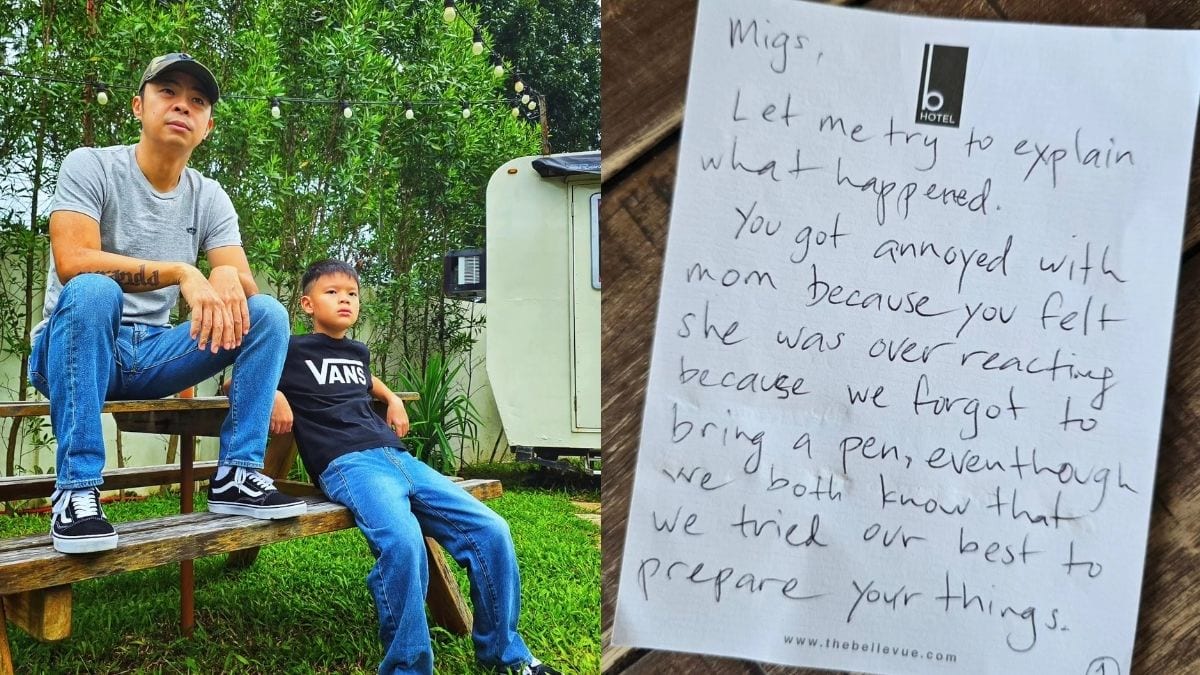 VANS
Migs,
b
HOTEL
Let me try to explain
what happened.
You got annoyed with
mom because you felt
she was over reacting
because we forgot to
bring a pen, eventhough
we both know that
we tried our best to
prepare your things.
www.thebellevue.com
1